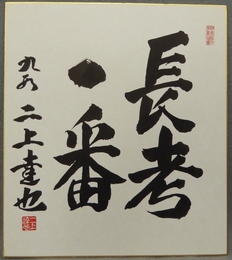 長考
一番
九段 二上達也